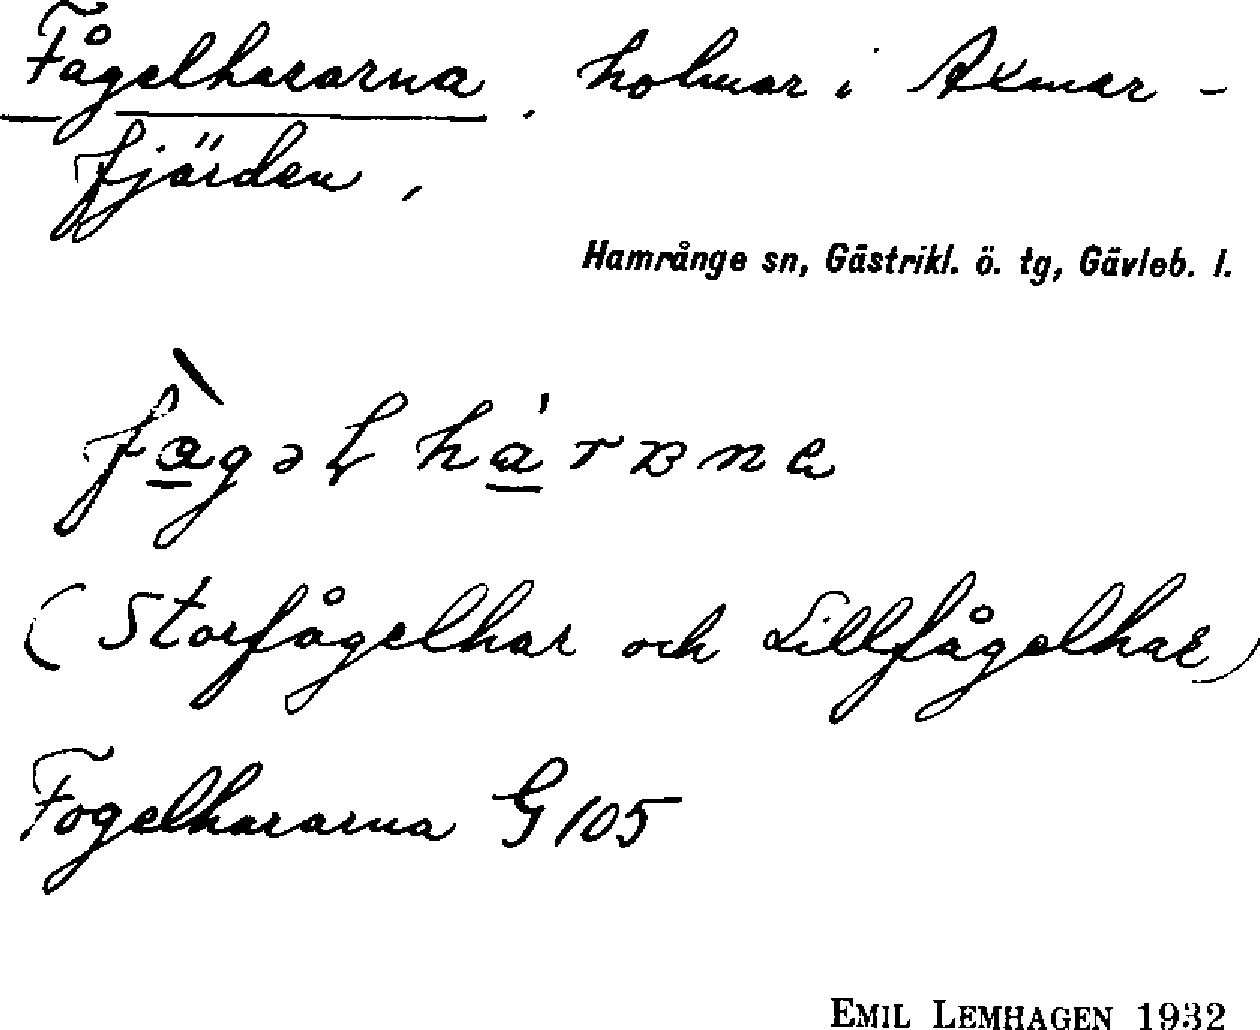 Fågelhararna, holmar i Axmar-
fjärden,
Hamrånge sn, Gästrikl. ö. tg, Gävleb. l.
(Storfågelhar och Lillfågelhar)
Fogelhararna G 105
EMIL LEMHAGEN 1932